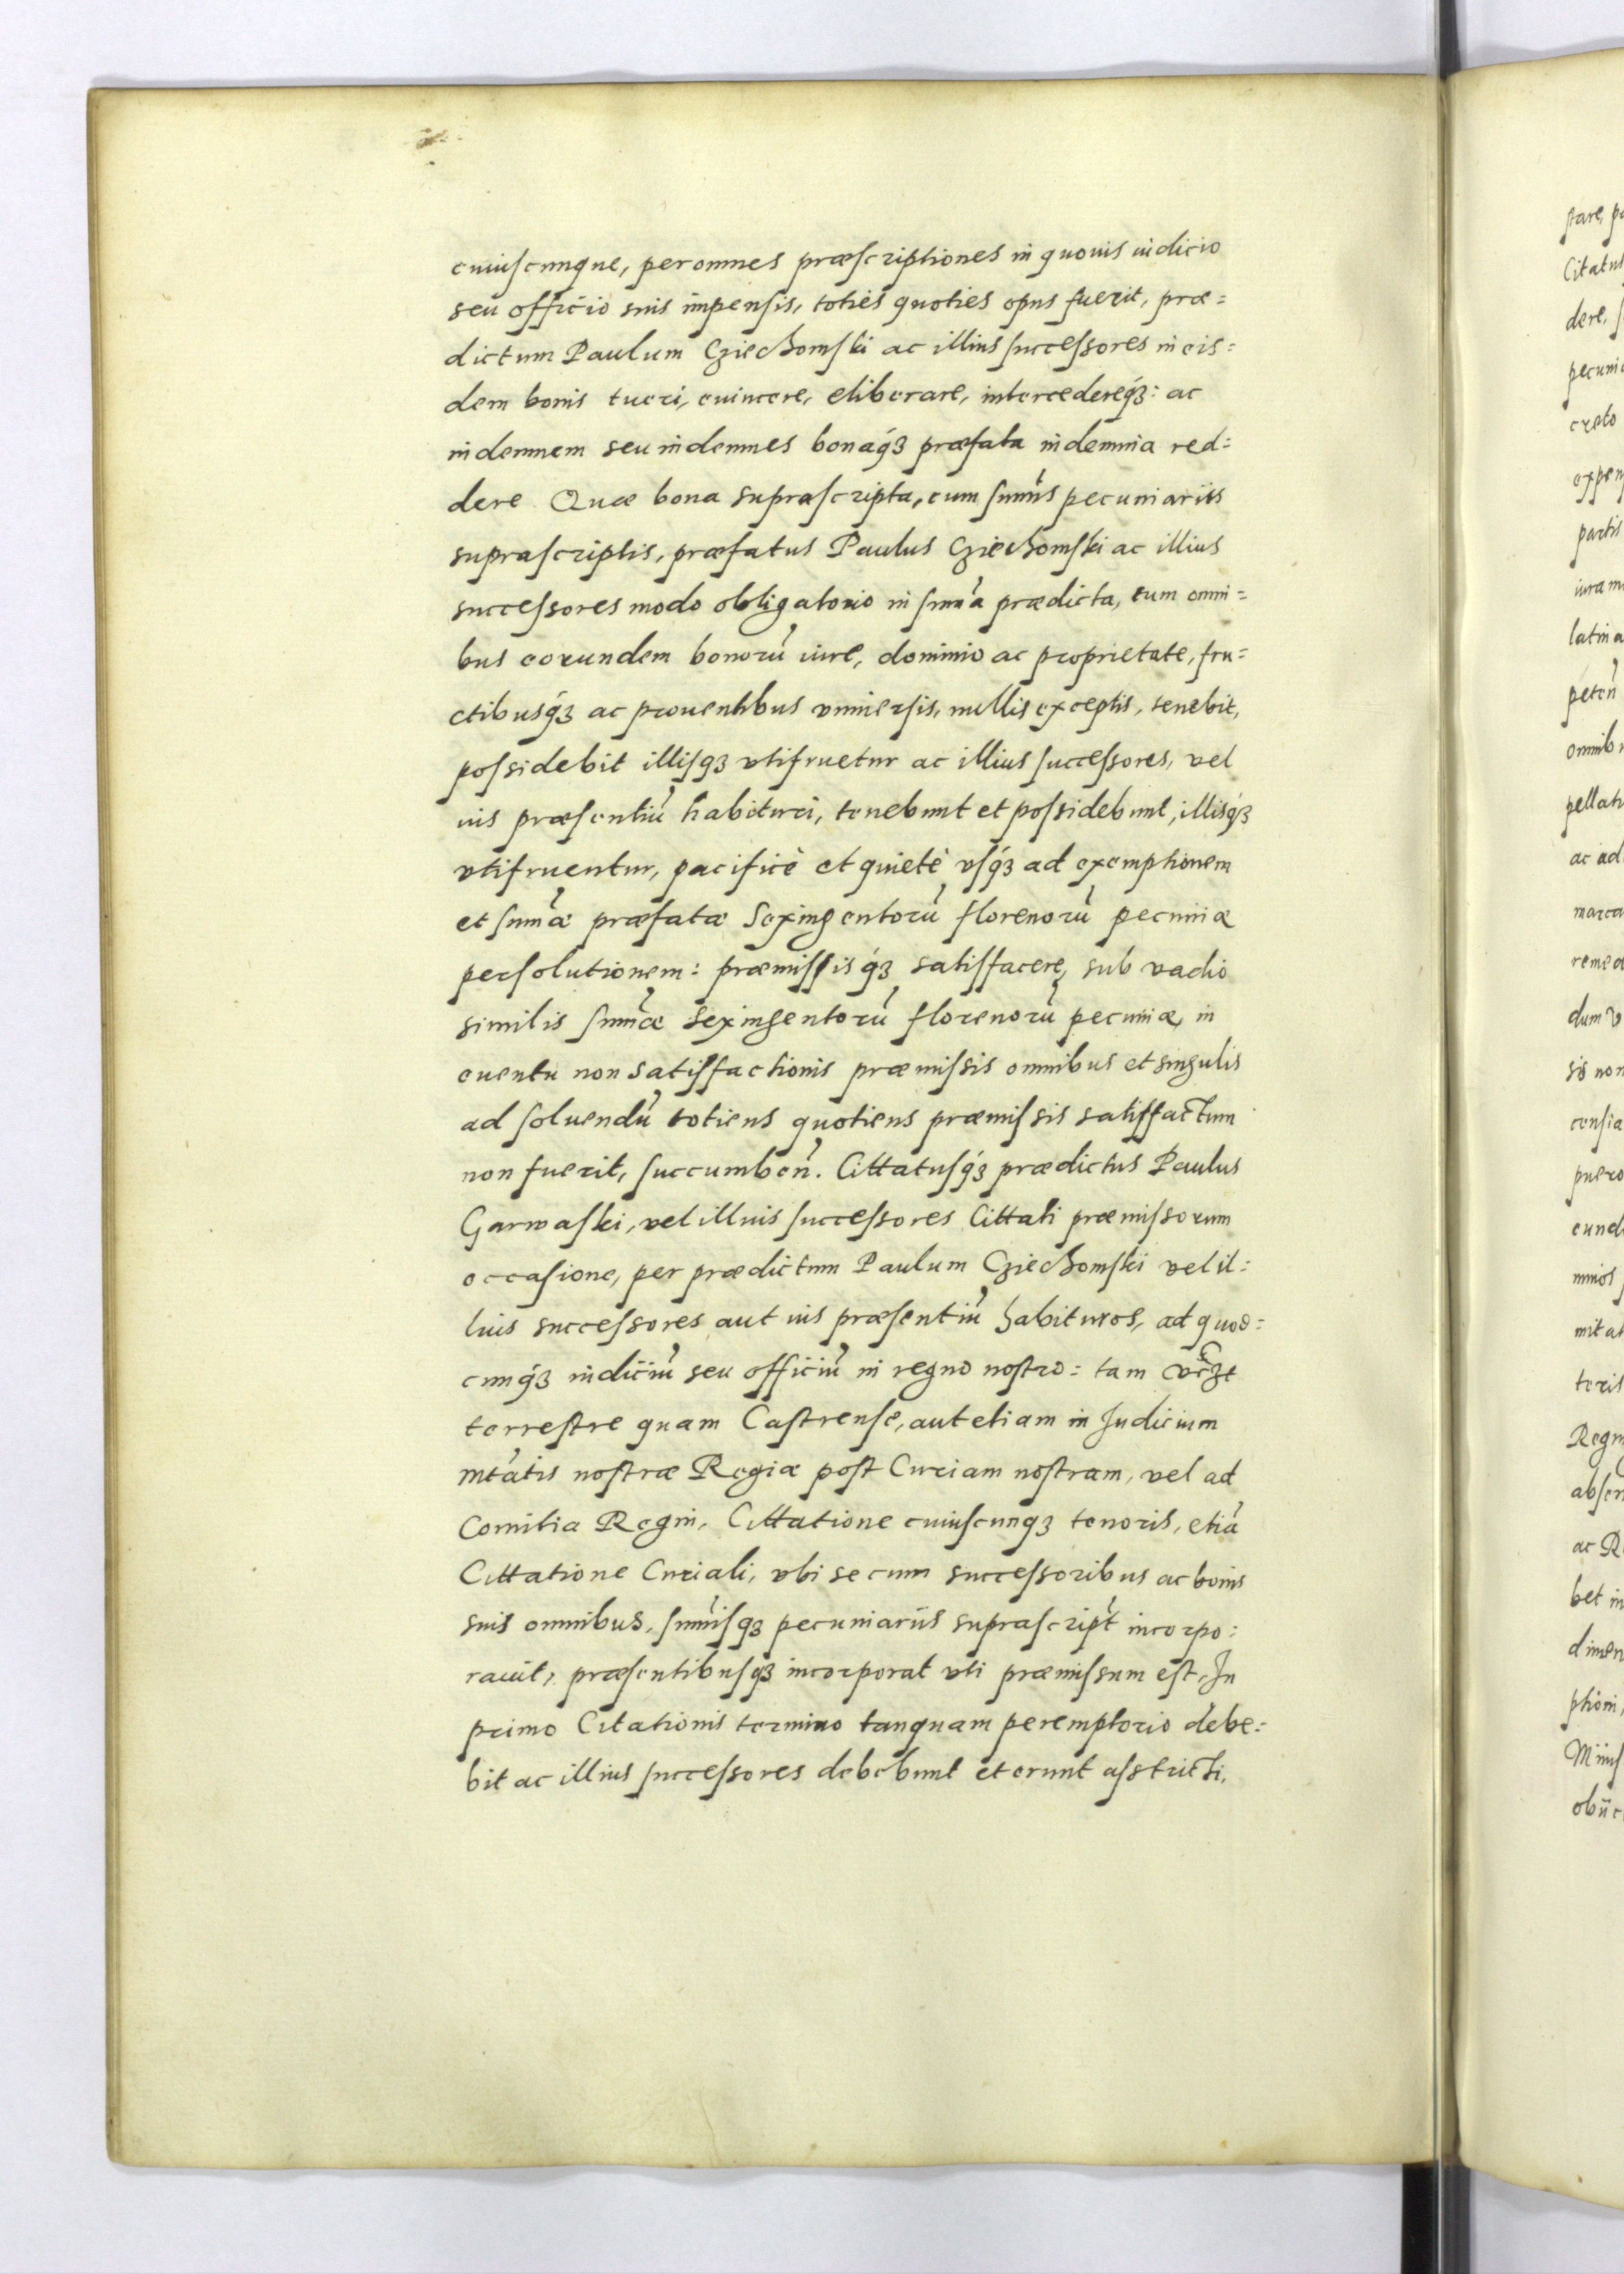 cuiuscunque, per omnes præscriptiones in quouis iudicio
seu officio suis impensis, toties quoties opus fuerit, præ=
dictum Paulum Cziechomski ac illius successores in eis=
dem bonis tueri, euincere, eliberare, intercedereq́ꝫ: ac
indemnem seu indemnes bonaq́ꝫ præfata indemnia red=
dere Quæ bona suprascripta, cum summ̃is pecuniariis
suprascriptis, præfatus Paulus Cziechomski ac illius
successores modo obligatorio in sum̃a prædicta, cum omni=
bus eorundem bonorũ iure, dominio ac proprietate, fru=
ctibusq́ꝫ ac prouentibus vniuersis, nullis exceptis, tenebit,
possidebit illisqꝫ vtifruetur ac illius successores, vel
ius præsentiũ habituri, tenebunt et possidebunt, illisq́ꝫ
vtifruentur, pacificè et quietè vsq́ꝫ ad exemptionem
et sum̃æ præfatæ Sexingentorũ florenorũ pecuniæ
persolutionem: præmissisq́ꝫ satisfacere, sub vadio
similis sum̃æ Sexingentorũ florenorũ pecuniæ, in
euentu non satisfactionis præmissis omnibus et singulis
ad soluendũ totiens quotiens præmissis satisfactum
non fuerit, succumbeñ. Cittatusq́ꝫ prædictus Paulus
Garwaski, vel illius successores Cittati præmissorum
occasione, per prædictum Paulum Cziechomski vel il=
lius successores aut ius præsentiũ habituros, ad quod=
cunq́ꝫ iudiciũ seu officiũ in regno nostro: tam
terrestre quam Castrense, aut etiam in Judicium
Mtãtis nostræ Regiæ post Curiam nostram, vel ad
Comitia Regni, Cittatione cuiuscunqꝫ tenoris, etiã
Cittatione Curiali, vbi se cum successoribus ac bonis
suis omnibus, sum̃isqꝫ pecuniariis suprascript̃ incorpo=
rauit, præsentibusqꝫ incorporat vti præmissum est, In
primo Citationis termino tanquam peremptorio debe=
bit ac illius successores debebunt et erunt asstricti,